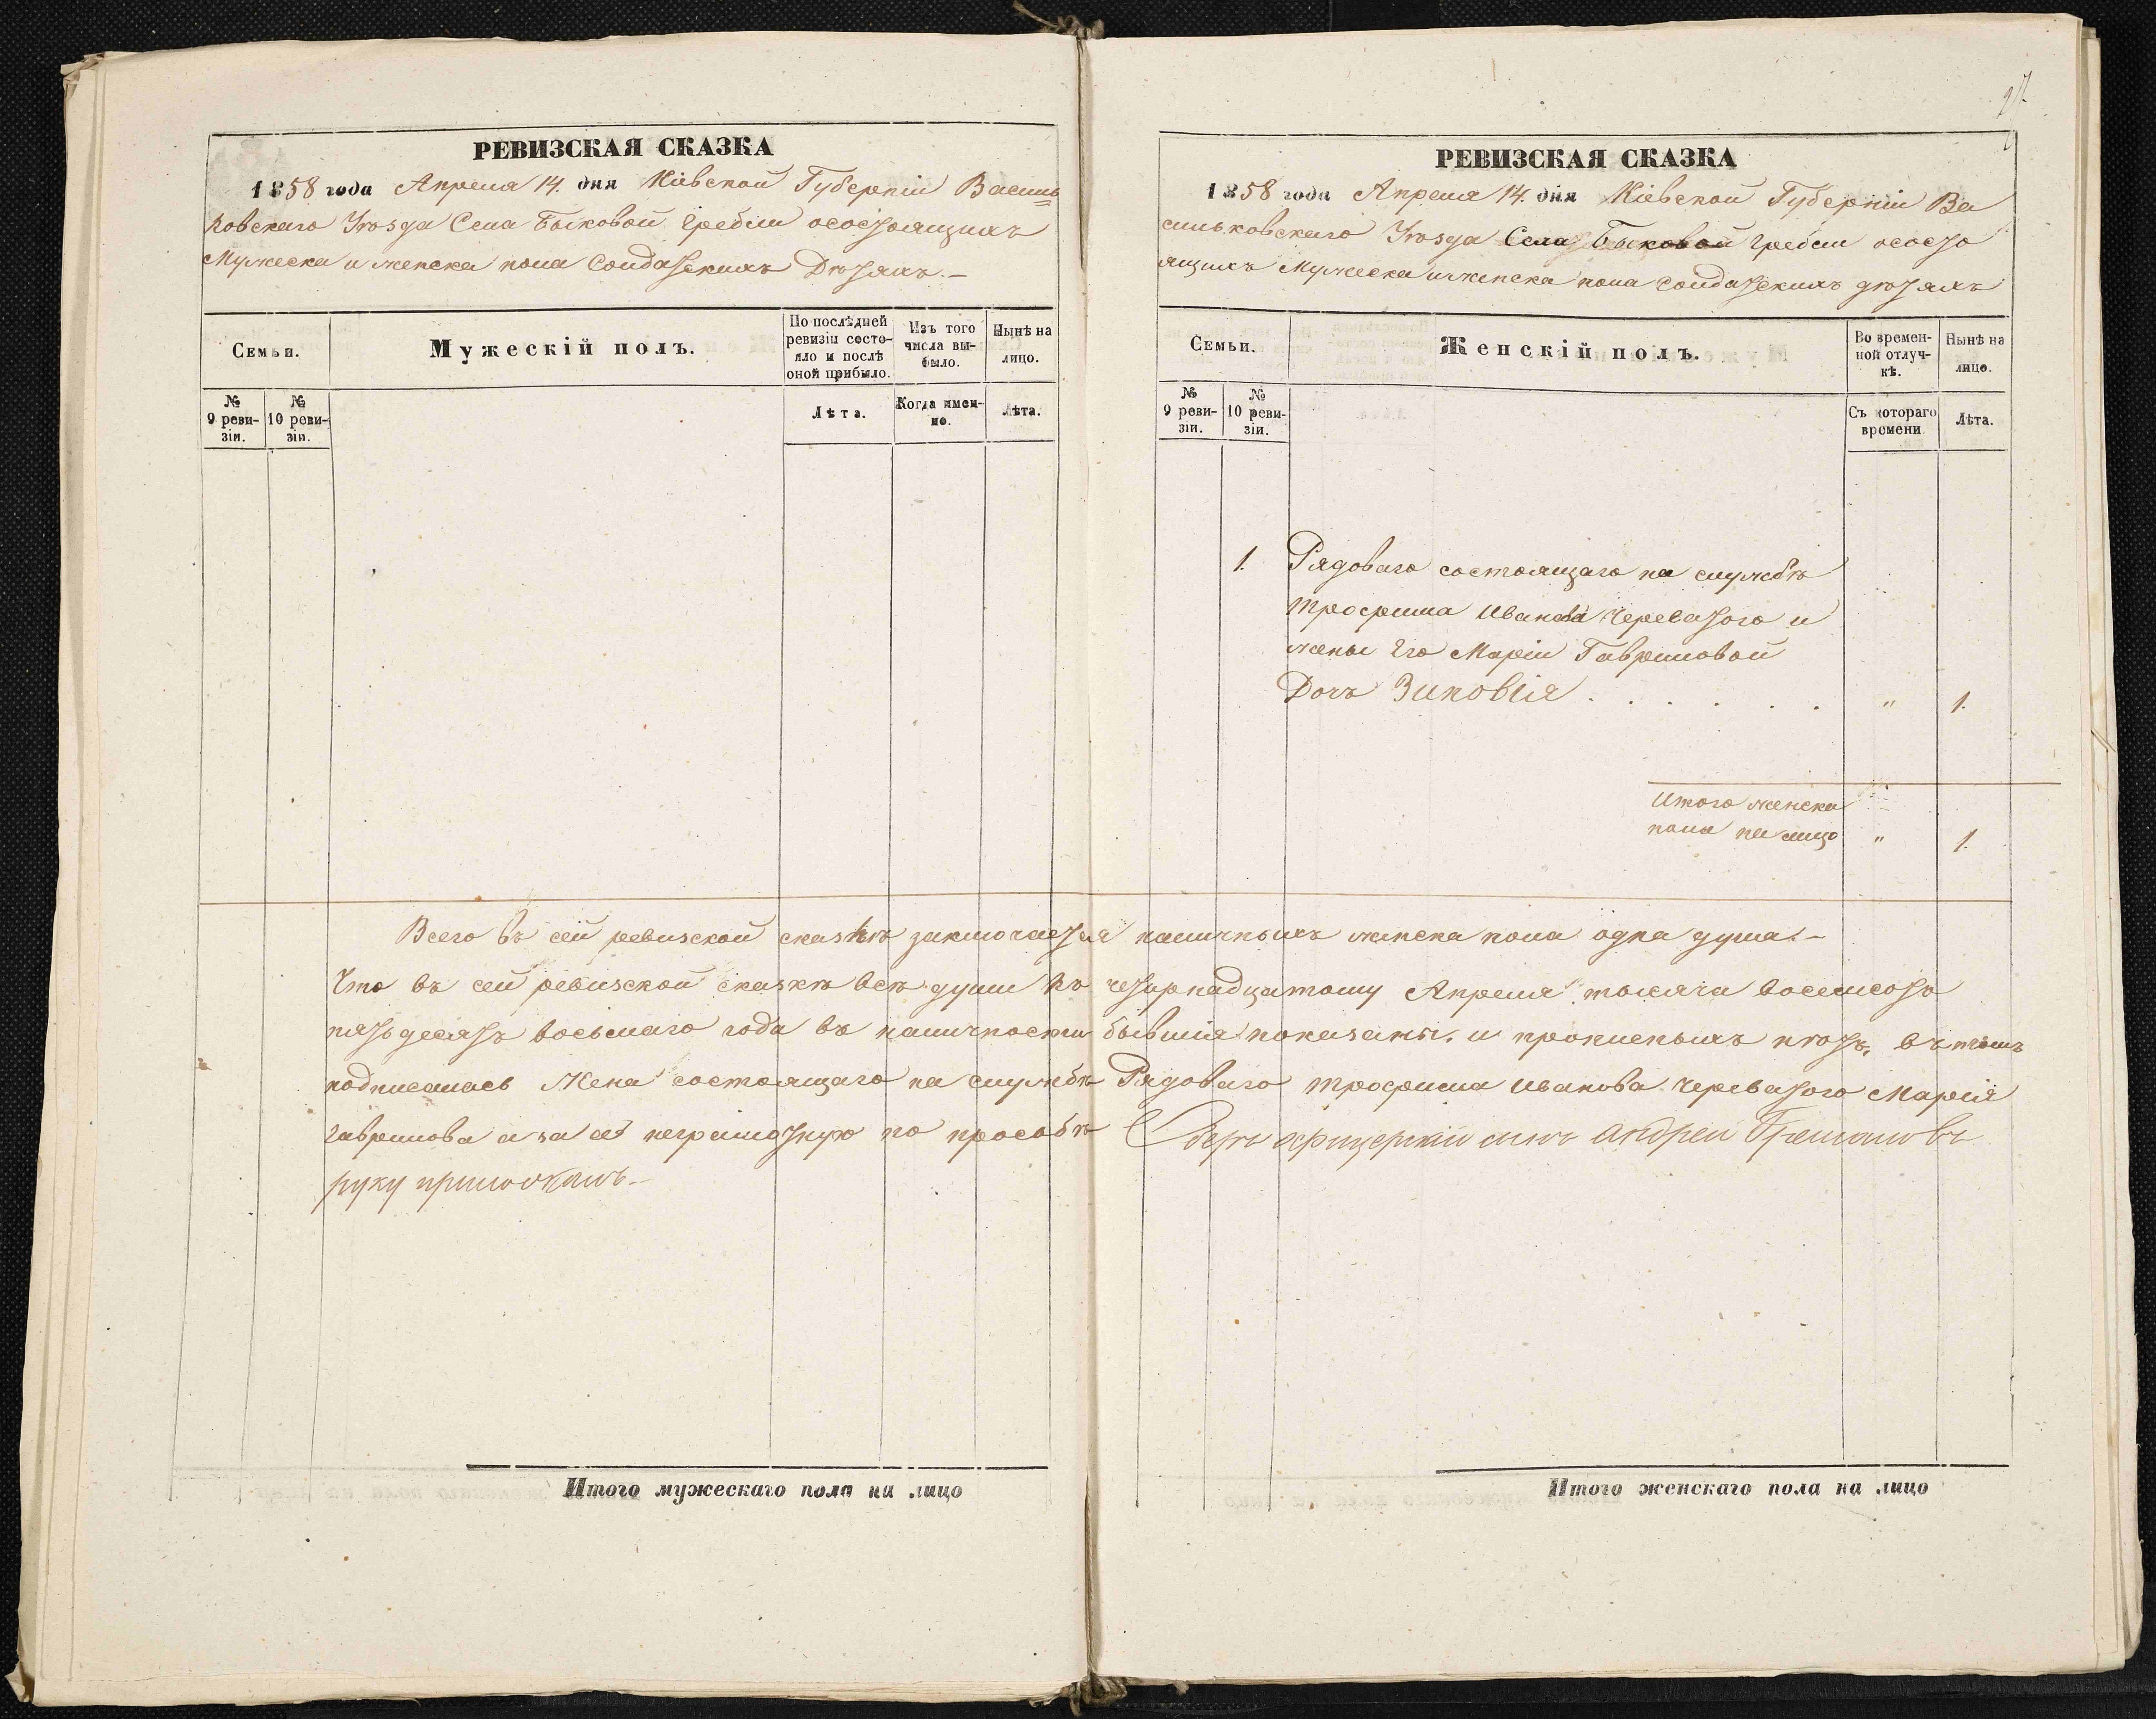 РЕВИЗСКАЯ СКАЗКА
1858 года Апреля 14. дня Кіевской Губерніи Василь
ковскаго Уѣзда Села Быковой Гребли осостоящихъ
Мужеска и женска пола Солдатскихъ Дѣтяхъ.–
Семьи.
Мужескій полъ.
По послѣдней
ревизіи состо-
яло и послѣ
оной прибыло.
Изъ того
числа вы-
было.
Нынѣ на
лицо.
№
9 реви-
зіи.
№
10 реви-
зіи.
Лѣта.
Когда имен-
но.
Лѣта.
РЕВИЗСКАЯ СКАЗКА
1858 года Апреля 14. дня Кіевской Губерніи Ва
сильковскаго Уѣзда Села Быковой Гребли ососто
ящихъ Мужеска и женска пола солдатскихъ дѣтяхъ
Семьи.
Женскій полъ.
Во времен-
ной отлуч-
кѣ.
Нынѣ на
лицо.
№
9 реви-
зіи.
№
10 реви-
зіи.
Съ котораго
времени
Лѣта.
1. Рядоваго состоящаго на службѣ
Трофима Иванова Череватого и
жены Его Маріи Гавриловой
Дочь Зиновія . . . . . . „ 1.
Итого женска
пола на лицо „ 1.
Всего въ сей ревизской сказкѣ заключается наличныхъ женска пола одна душа.–
Что въ сей ревизской сказкѣ всѣ души къ четырнадцатому Апреля тысяча восемсотъ
пятьдесятъ восьмаго года въ наличности бывшія показаны, и прописныхъ нѣтъ, въ томъ
подписалась Жена состоящаго на службѣ Рядоваго Трофима Иванова Череватого Марія
Гаврилова а за её неграмотную по прособѣ Оберъ офицерскій сынъ Андрей
руку приложилъ.–
Итого мужескаго пола на лицо
Итого женскаго пола на лицо